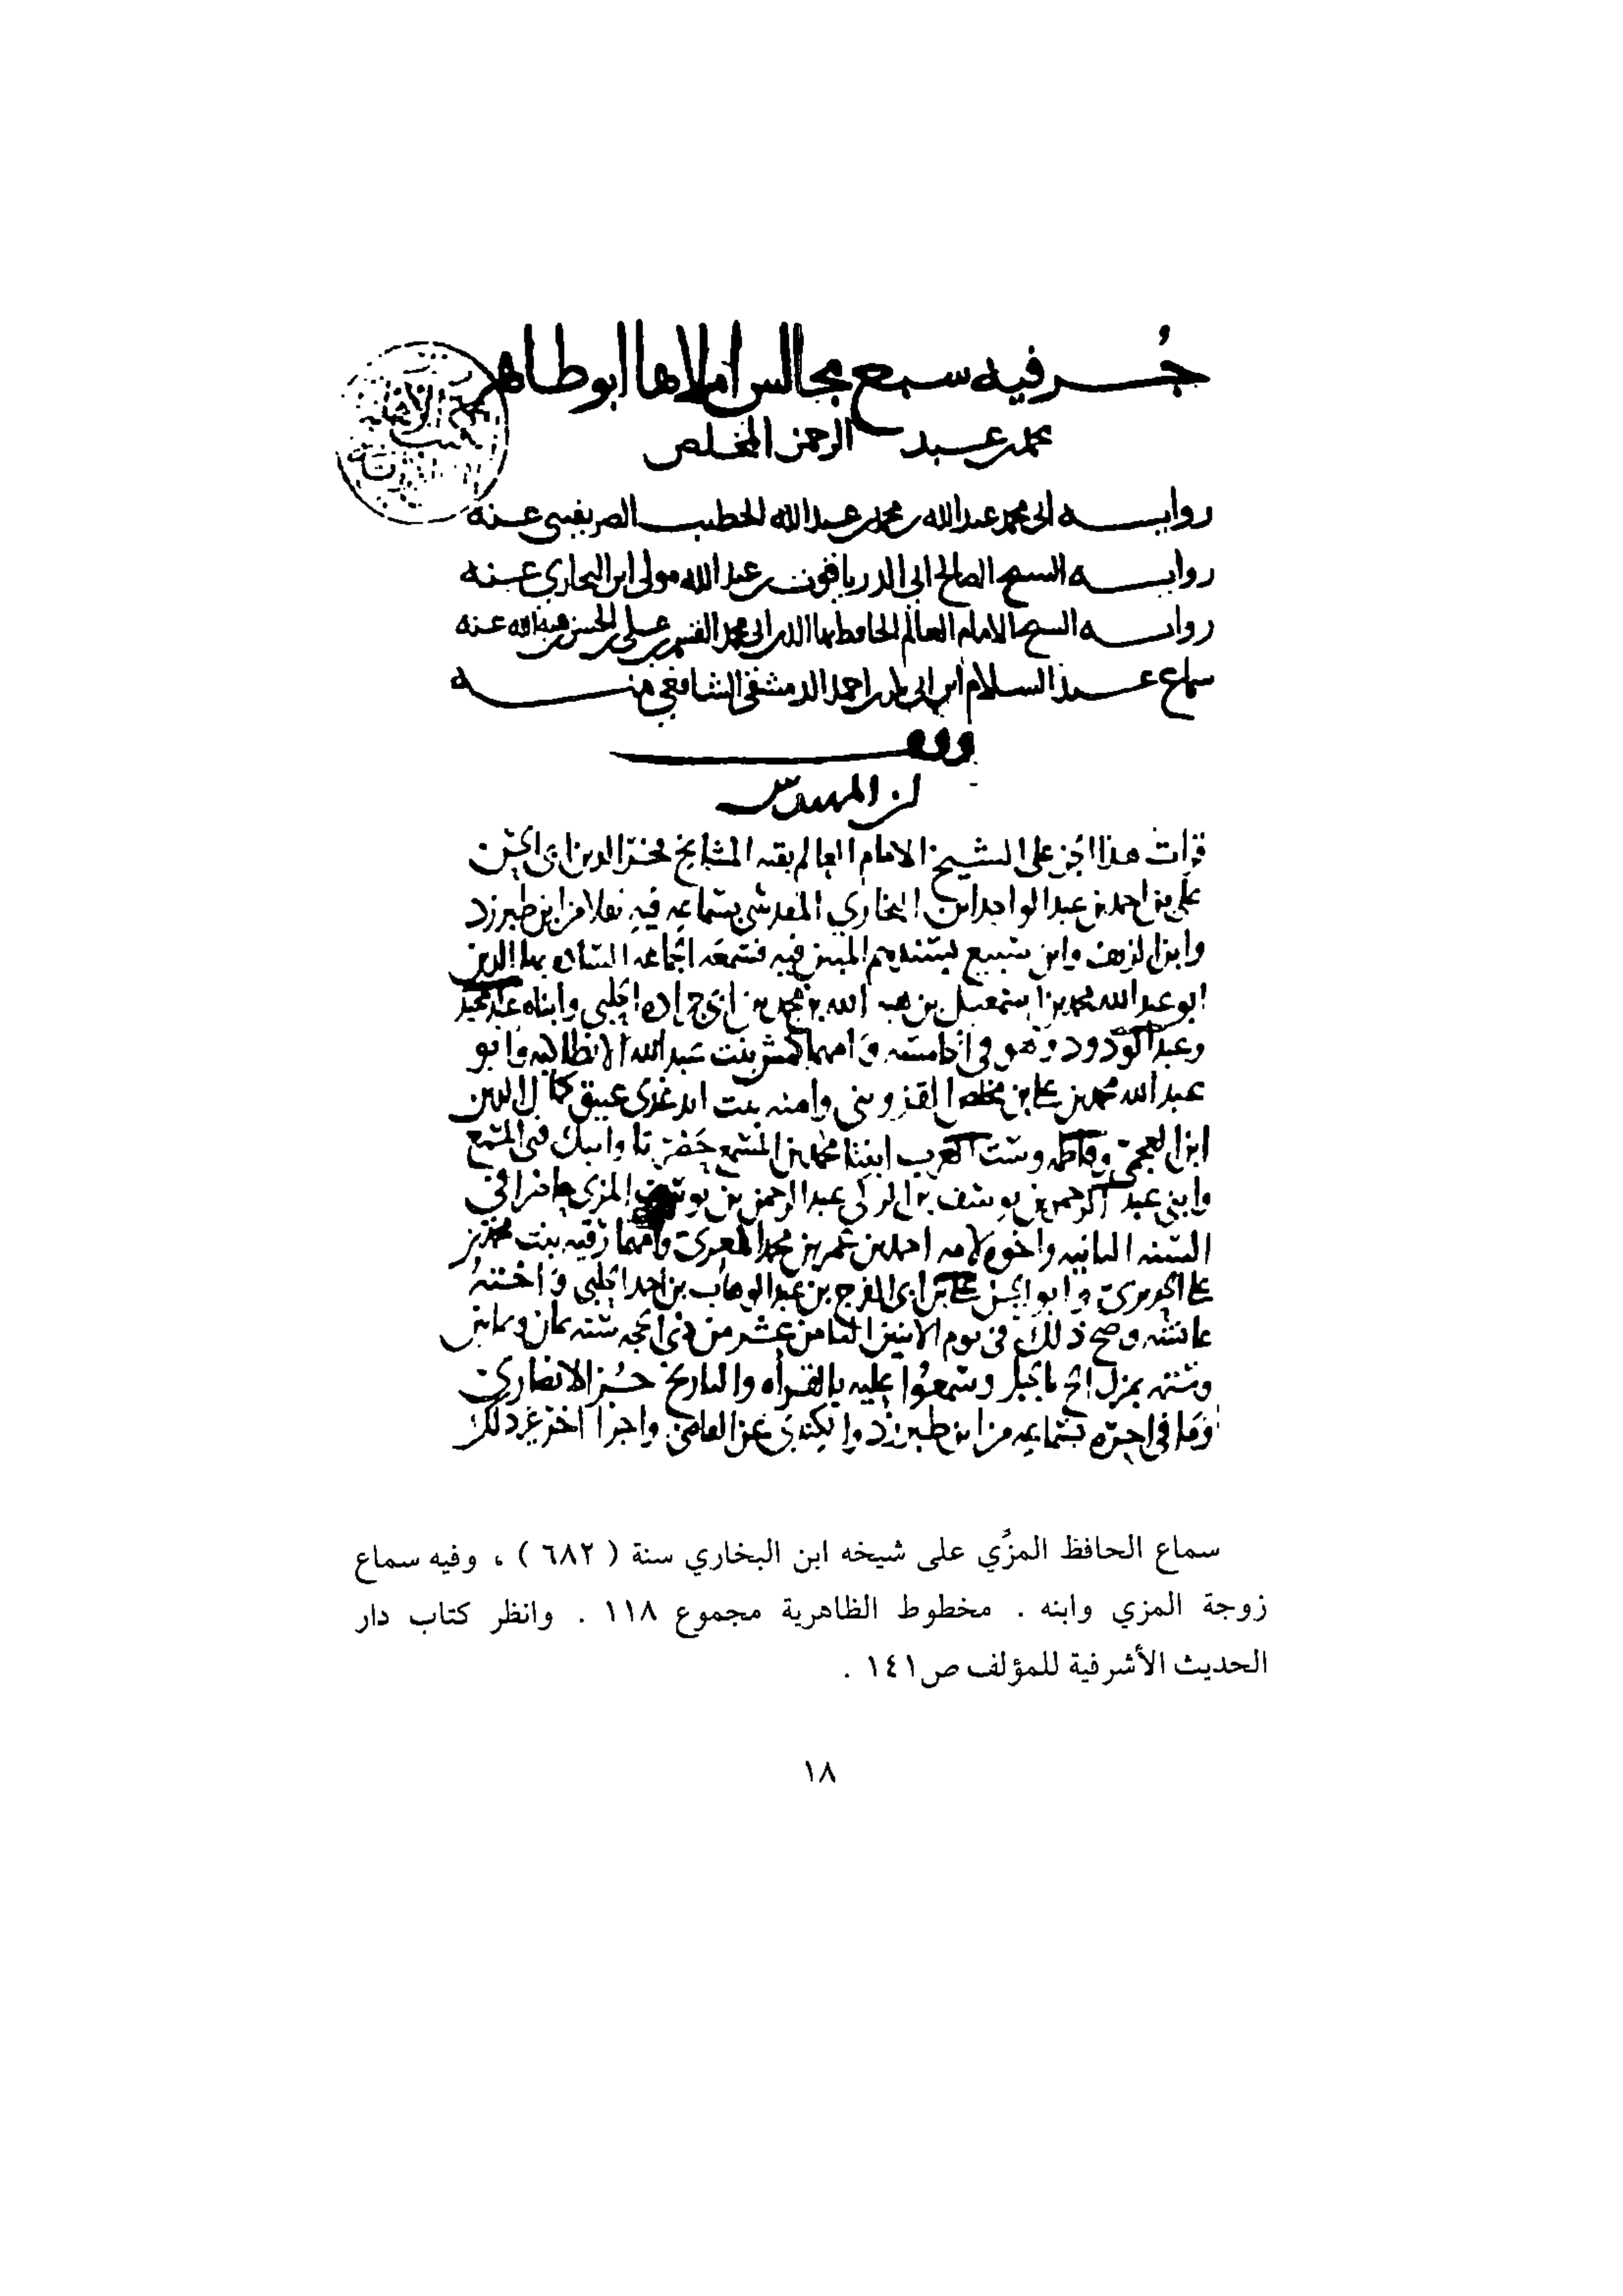 جزء فيه سبع مجالس املاها ابو طاهر
محمد بن عبد الرحمن المخلص
روايه ابي محمد عبد الله بن محمد بن عبد الله الخطيب الصريفيني عنه
روايه الشيخ الصالح ابي الدر ياقوت بن عبد الله مولى ابن البخاري عنه
روايه الشيخ الامام العالم الحافظ بها الدين ابي محمد القسم بن علي بن الحسن بن هبة الله عنه
سماع عبد السلام ابن ابي بكر بن احمد الدمشقي الشافعي منه
وقف
قرات هذا الجز على الشيخ الامام العالم بقيه المشايخ فخر الدين ابي الحسن
علي بن احمد بن عبد الواحد ابن البخاري المقدسي بسماعه فيه نقلا من ابن طبرزد
وابن الزنف وابن سبيع بسندهم المبين فيه فسمعه الجماعه الساده بها الدين
ابو عبد الله محمد بن اسمعيل بن هبه الله بن محمد بن ابي جراده الحلبي وابناه عبد المجيد
وعبد الودود وهو في الخامسه وامهما بنت عبد الله الانطاكيه وابو
عبد الله محمد بن علي بن مخلص القزويني وامنه بنت ايدغدي عتيق كمال الدين
ابن العجمي وفاطمه وست العرب ابنتا محمد بن المسمع حضرتا وايبك فتى المسمع
وابني عبد الرحمن بن يوسف بن الزكي عبد الرحمن بن يوسف المزي حاضرا في
السنه الثانيه واخوه لامه احمد بن عمر بن محمد المعري وامهما رقيه بنت محمد بن
علي الحريري وابو الحسن علي بن ابي الفرج بن عبد الوهاب بن احمد الحلبي واخته
عائشه وصح ذلك في يوم الاثنين الثامن عشر من ذي الحجه سنه ثمان وثمانين
وستمه بمنزل الشيخ بالجبل وسمعوا عليه بالقراه والتاريخ جز الانصاري
وما في اخره بسماعه من ابن طبرزد والكندي عن القاضي واجزا اخر غير ذلك
سماع الحافظ المزِّي على شيخه ابن البخاري سنة ( ٦٨٢ ) ، وفيه سماع
زوجة المزي وابنه . مخطوط الظاهرية مجموع ١١٨ . وانظر كتاب دار
الحديث الأشرفية للمؤلف ص١٤١ .
١٨